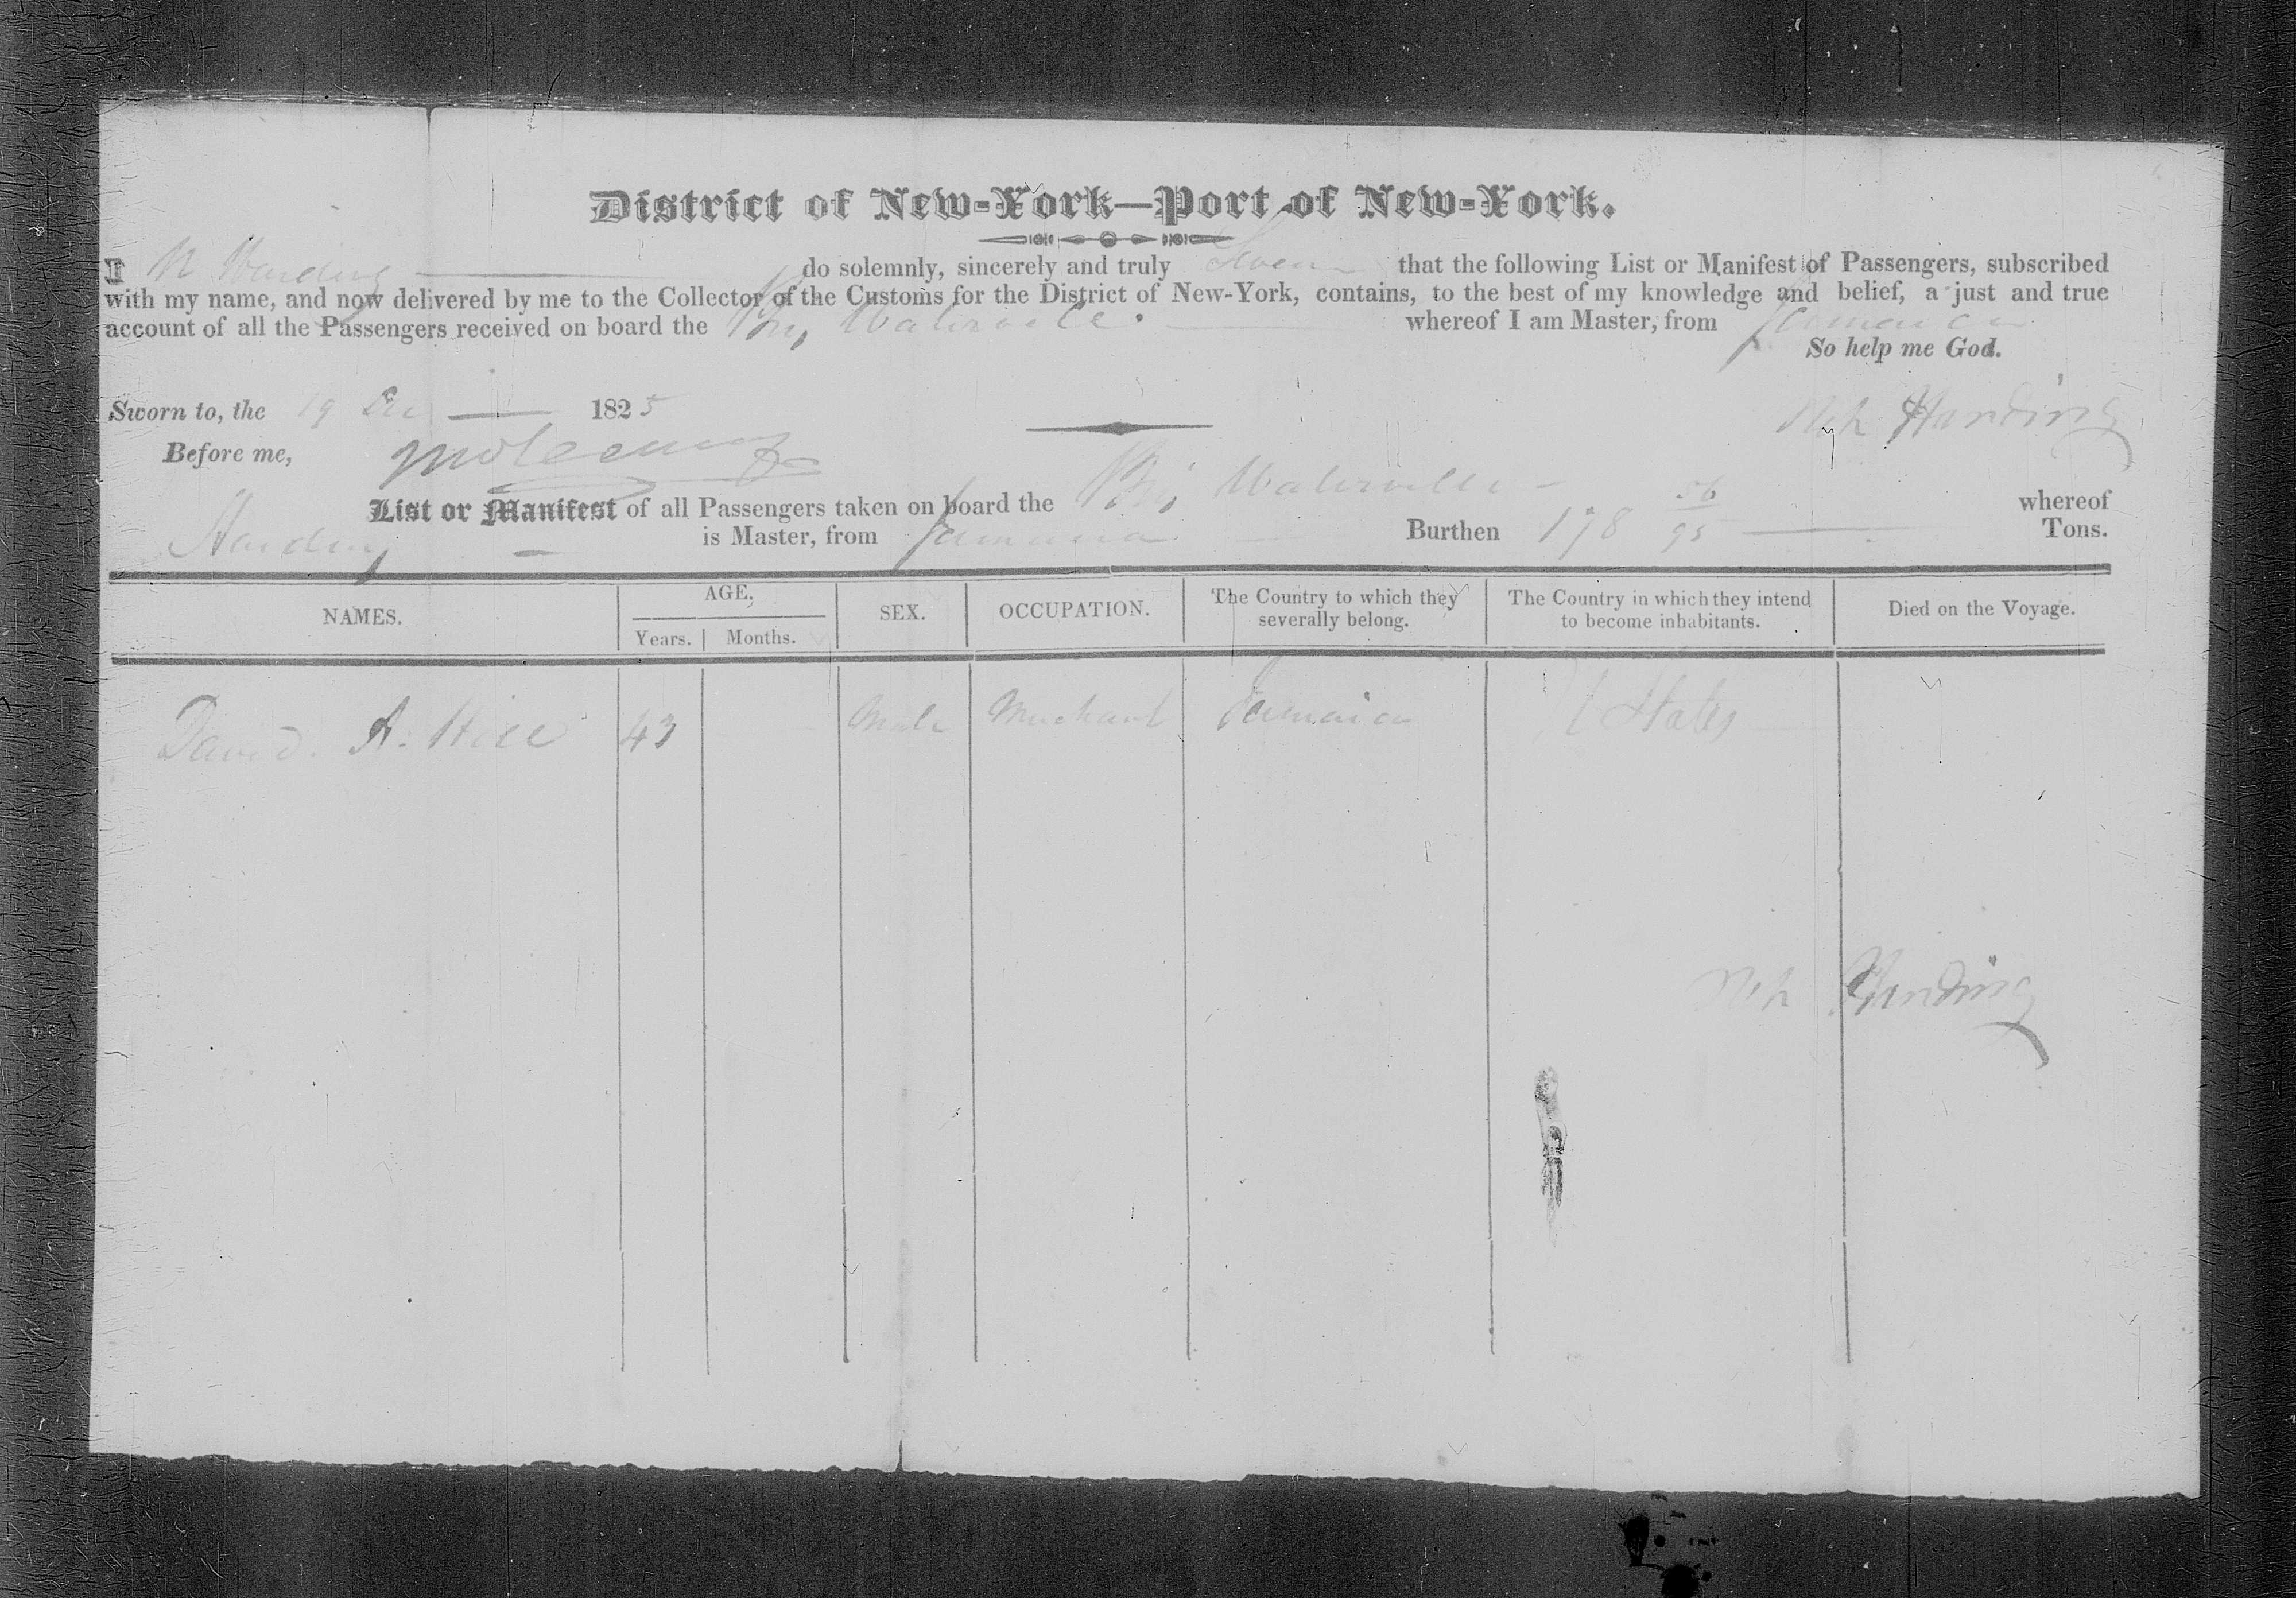 District of New-York—Port of New-York.
I N Harding do solemnly, sincerely and truly Swear that the following List or Manifest of Passengers, subscribed
with my name, and now delivered by me to the Collector of the Customs for the District of New-York, contains, to the best of my knowledge and belief, a just and true
account of all the Passengers received on board the Brig Waterville. whereof I am Master, from Jamaica
So help me God.
Sworn to, the 19 Dec 1825
Neh Harding
Before me,
List or Manifest of all Passengers taken on board the Brig Waterville whereof
Harding is Master, from Jamaica Burthen 178 56/95 Tons.
NAMES. AGE. SEX. OCCUPATION. The Country to which they severally belong. The Country in which they intend to become inhabitants. Died on the Voyage.
Years. Months.
David A. Hill 43 Male Merchant Jamaica U States
Neh Harding